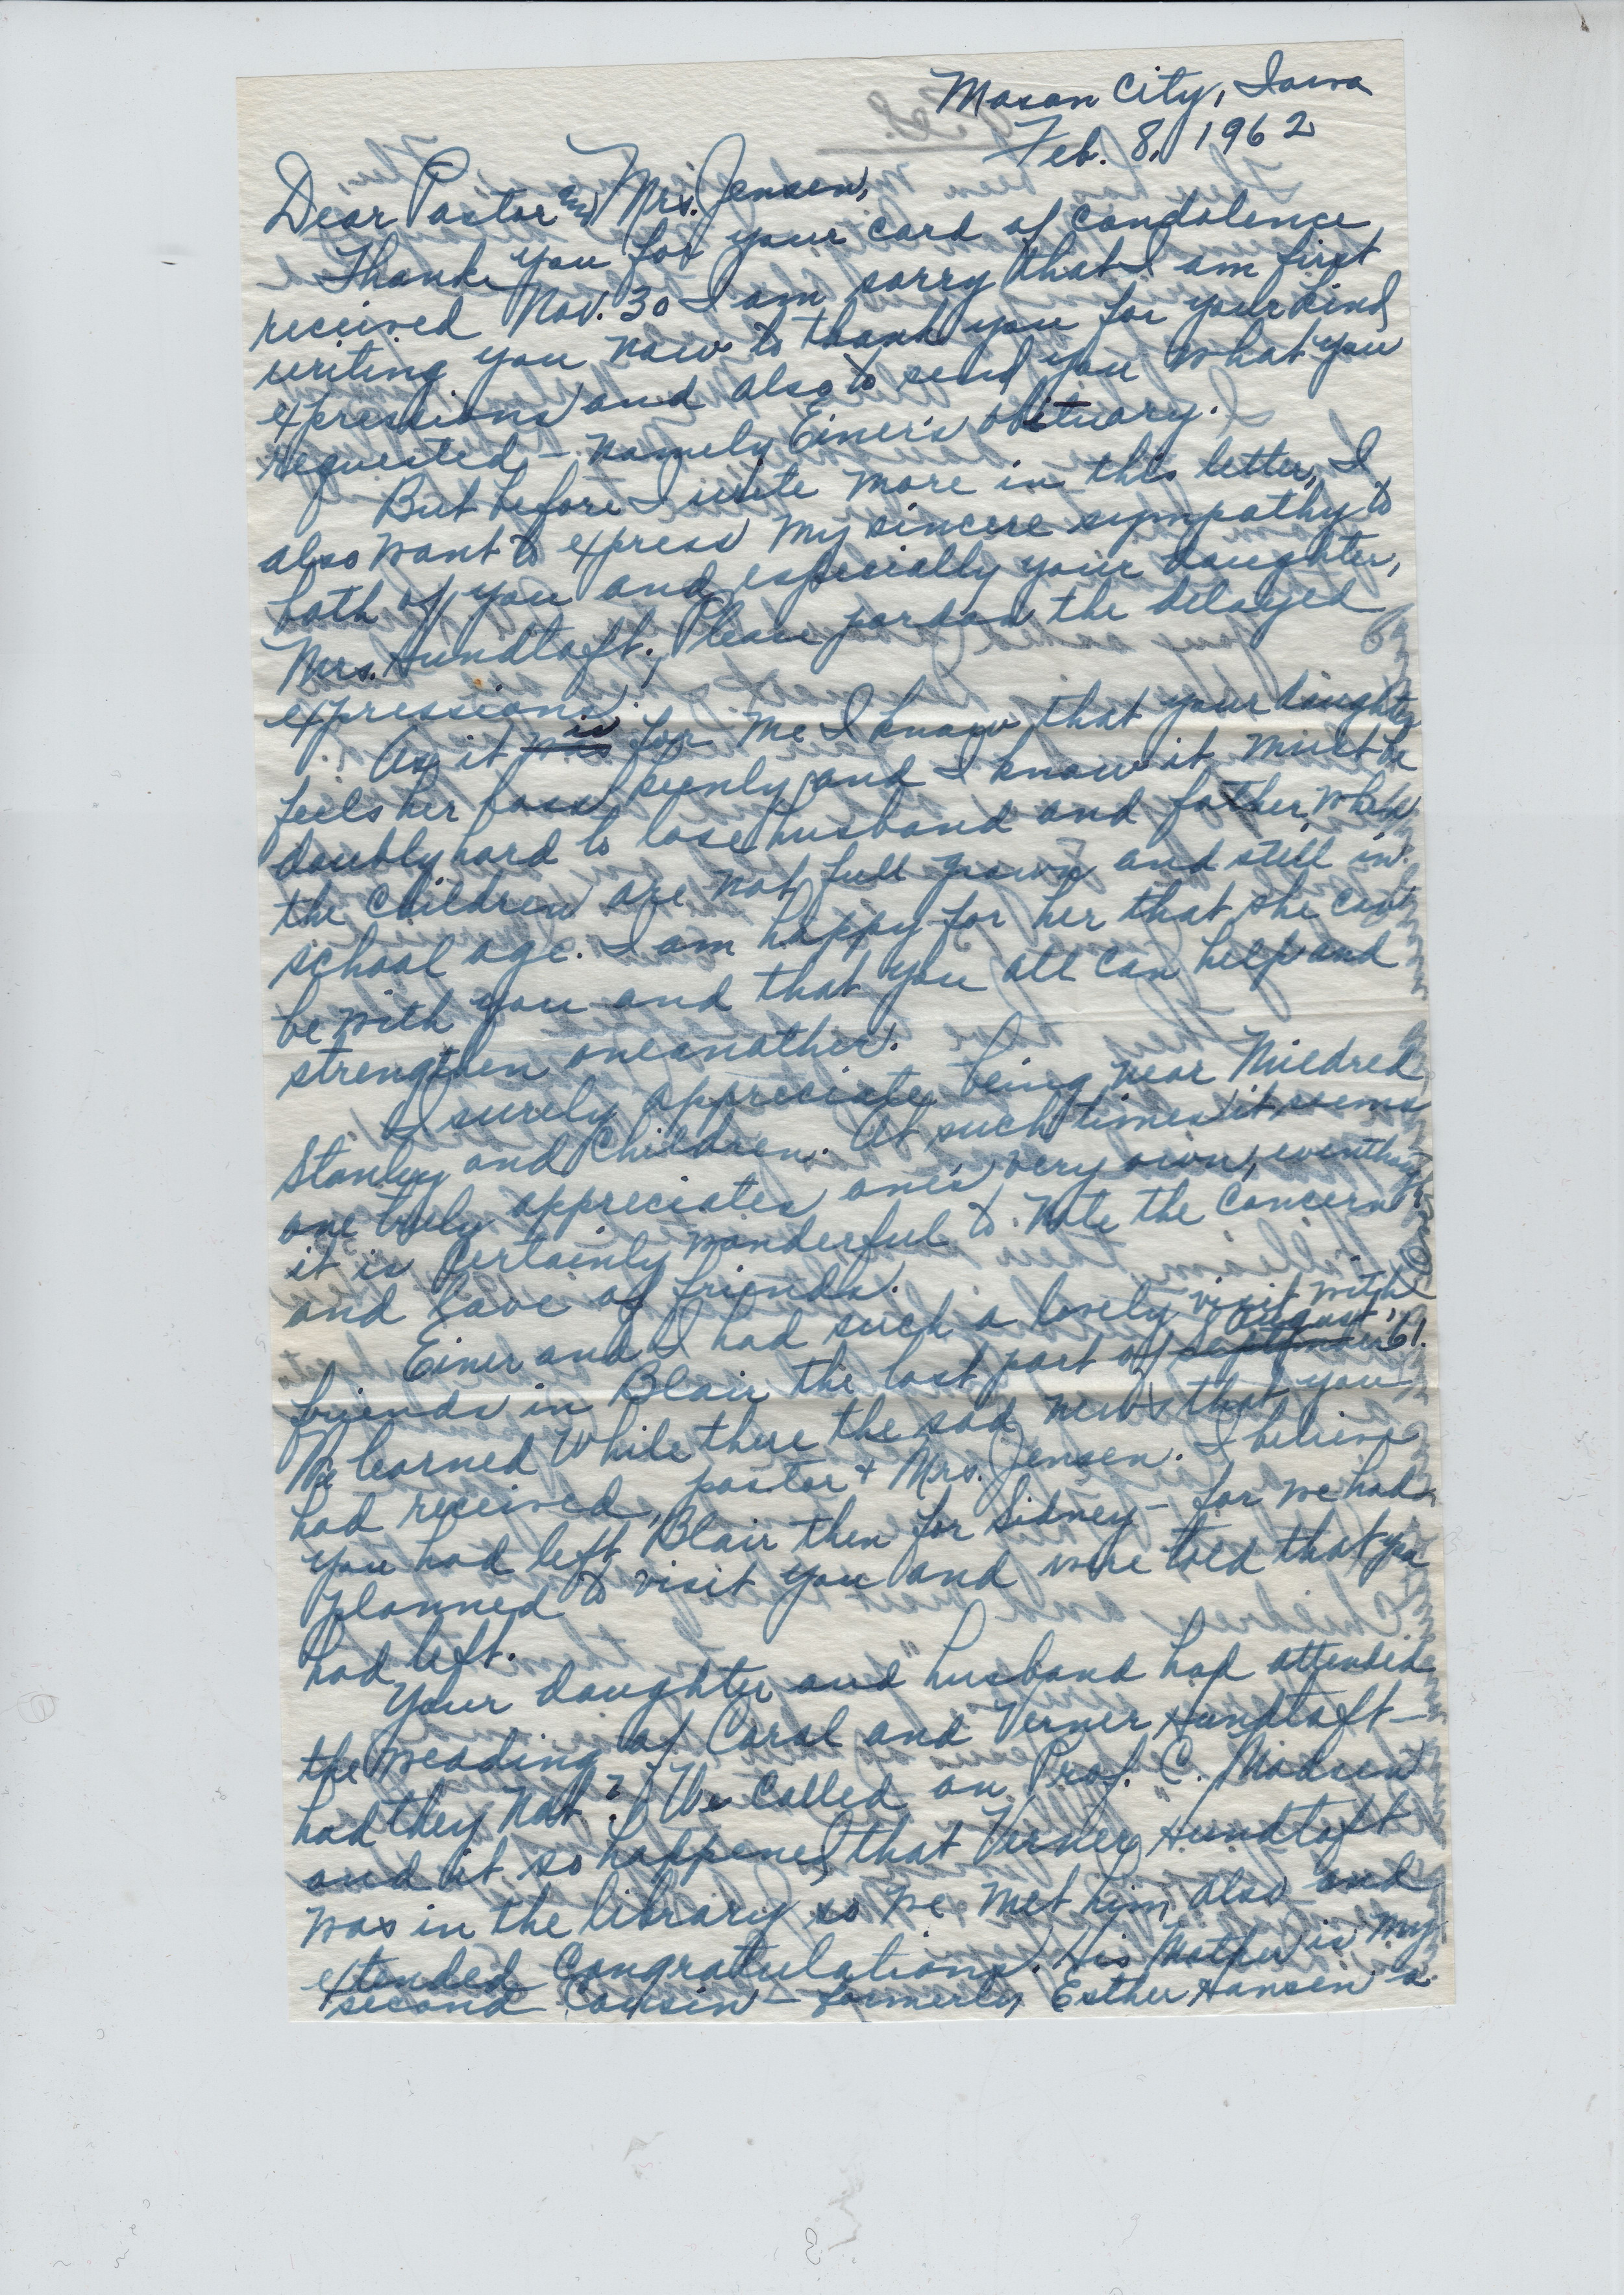 Mason City, Iowa
Feb. 8, 1962
Dear Pastor and Mrs. Jensen,
Thank you for your card of condolence
received Nov. 30 I am sorry that I am first
writing you now to thank you for your kind
expressions and also to send you what you
requested, - namely Einer's obituary.
But before I write more in this letter, I
also want to express my sincere sympathy to
both of you and especially your daughter,
Mrs. Hundtoft. Please pardon the delayed
expressions.
As it is for me I know that your daughter
feels her loss keenly and I know it must be
doubly hard to lose husband and father while
the children are not full grown and still in
school age. I am happy for her that she can
be with you and that you all can help and
strengthen oneanother.
I surely appreciate being near Mildred
Stanley and Children. At such times it seems
one truly appreciates one's very own, eventhough
it is certainly wonderful to note the concern
and love of friends.
Einer and I had such a lovely visit with
friends in Blair the last part of September August '61.
We learned while there the sad news that you
had received, pastor + Mrs. Jensen. I believe
you had left Blair then for Sidney - for we had
planned to visit you and were told that you
had left.
Your daughter and husband had attended
the wedding of Carol and Verner Hundtoft -
had they not? We called on Prof. C. Madsen
and it so happened that Verner Hundtoft
was in the library so we met him also and
extended Congratulations. His Mother is my
second Cousin - formerly Esther Hansen a